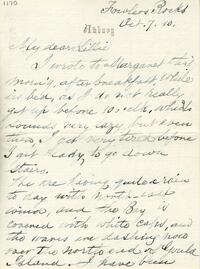 1170
Fowlers Rocks
Oct. 7. 10.
My dear Lillie
I wrote to Margaret this
morn'g, after breakfast while
in bed, as I do not really
get up before 10. oclk, which
sounds very lazy, but even
then, I get very tired before
I get ready to go down
Stairs.
We are having quite a
to day with North
wind, and the Bay is
covered with white caps, and
the waves are dashing
over the north end of Gould
Island. I have been